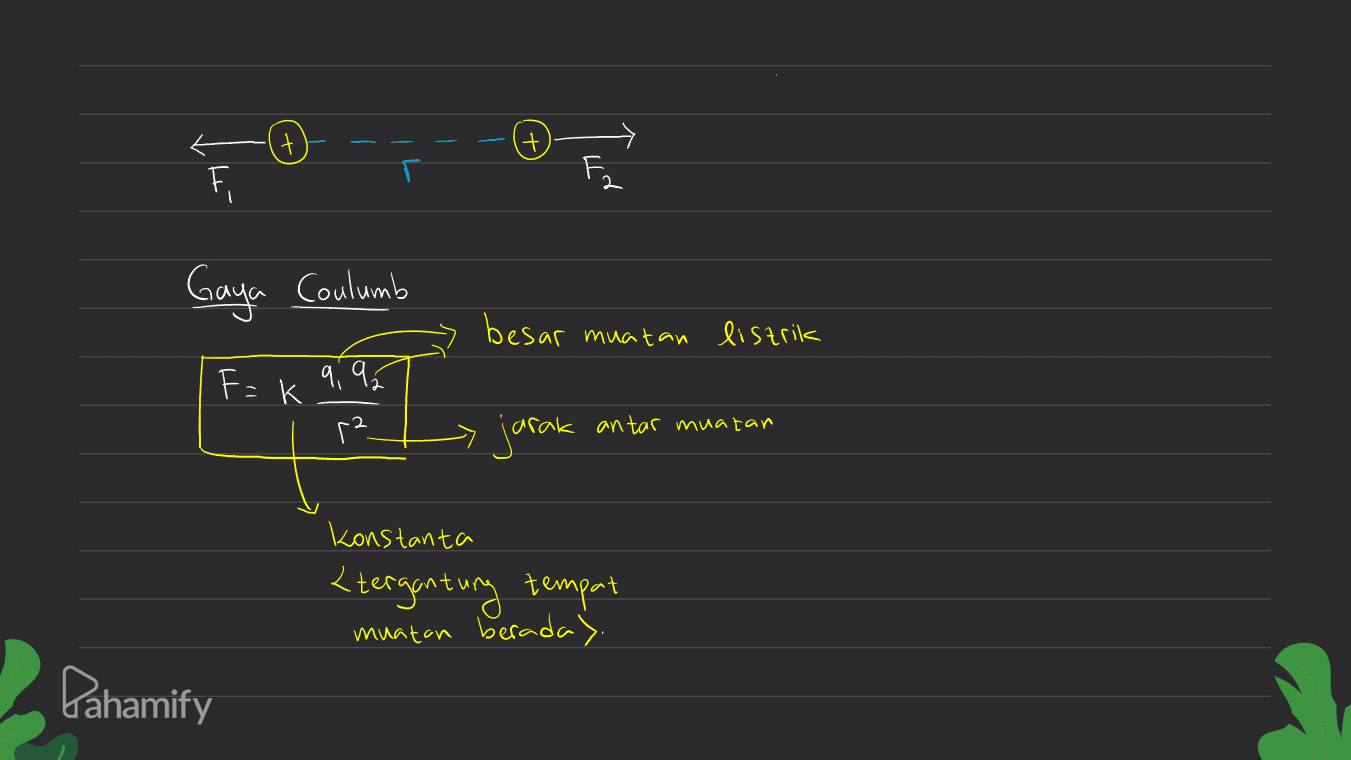 + +
r
F₁ F₂
Gaya Coulumb
besar muatan listrik
F = k q₁ q₂
r²
jarak antar muatan
konstanta
<tergantung tempat
muatan berada>.
Pahamify